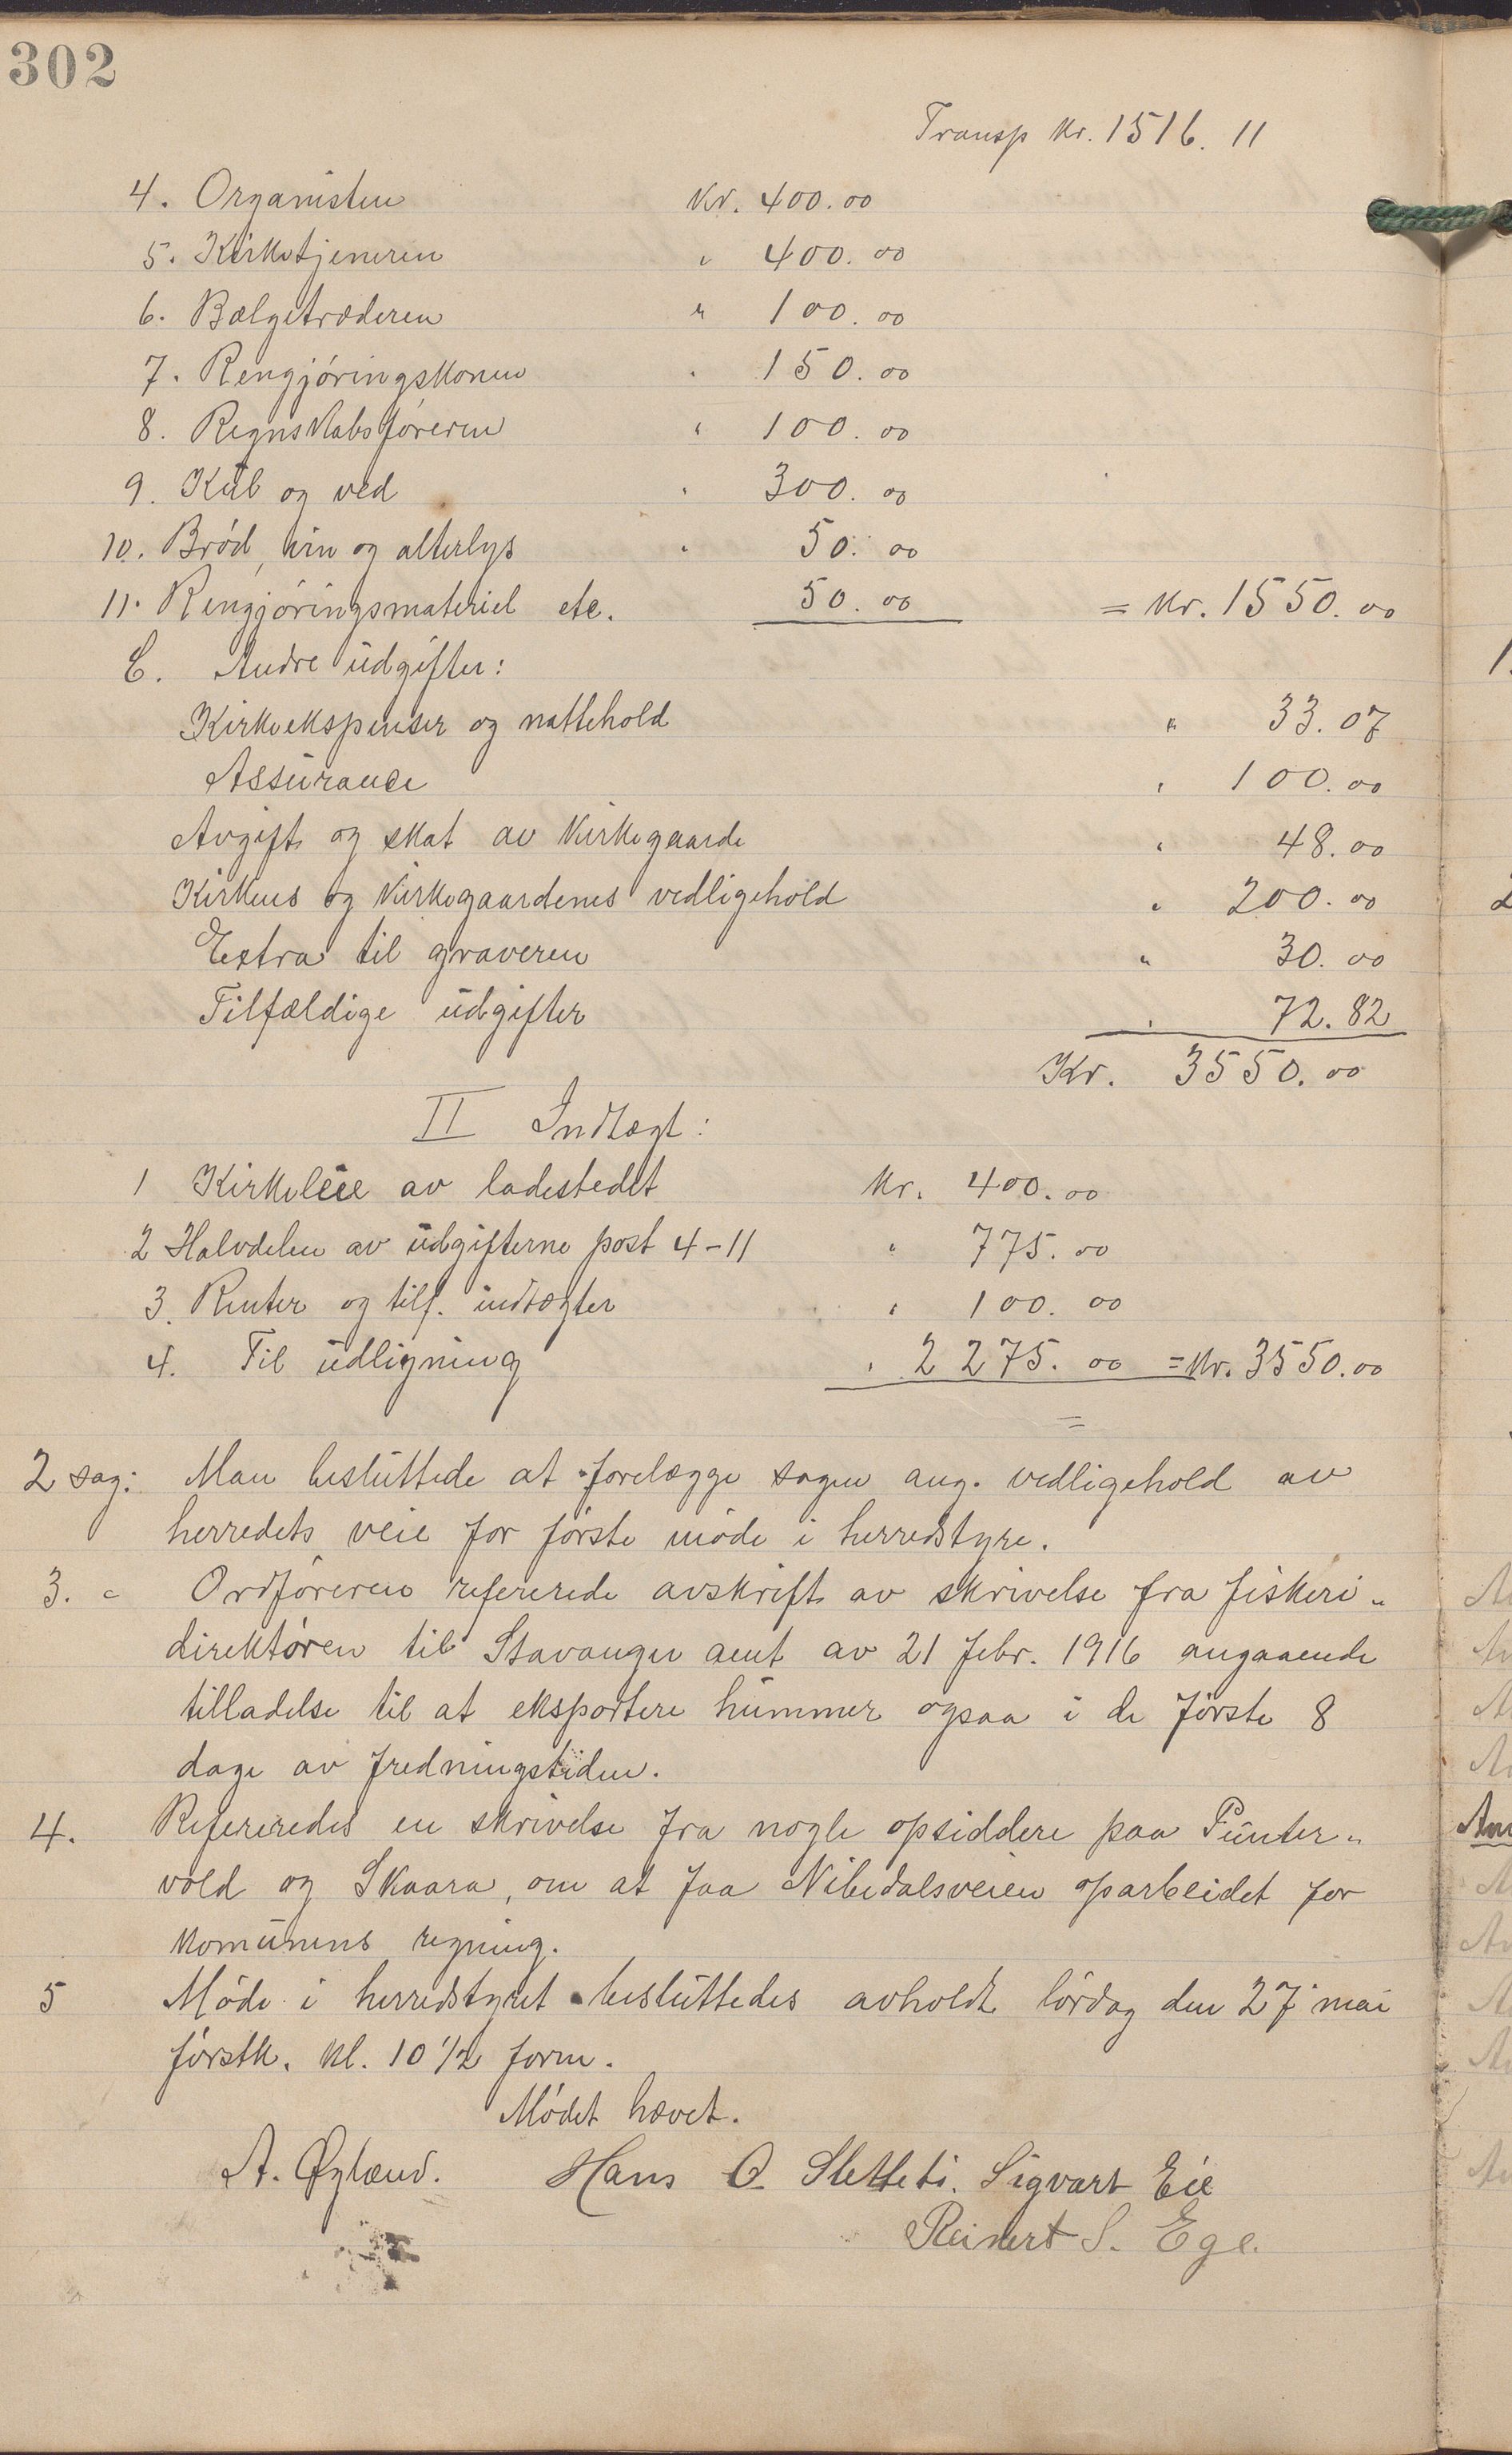 302
Transp Kr. 1516. 11
4. Organisten Kr. 400.00
5. Kirketjeneren " 400.00
6. Bælgetræderen " 100.00
7. Rengjøringskonen " 150.00
8. Regnskabsføreren " 100.00
9. Kul og ved " 300.00
10. Brød, vin og alterlys " 50.00
11. Rengjøringsmateriel etc. 50.00 = Kr. 1550.00
C. Andre udgifter:
Kirkeekspenser og nattehold " 33.07
Assurance " 100.00
Avgift og skat av kirkegaarde " 48.00
Kirkens og kirkegaardenes vedligehold " 200.00
Extra til graveren " 30.00
Tilfældige udgifter " 72.82
Kr. 3550.00
II Indtægt:
1 Kirkeleie av ladestedet Kr. 400.00
2 Halvdelen av udgifterne post 4-11 " 775.00
3. Renter og tilf. indtægter " 100.00
4. Til udligning " 2275.00 = Kr. 3550.00
2 sag: Man besluttede at forelægge sagen ang. vedligehold av
herredets veie for første møde i herredstyre.
3. " Ordføreren refererede avskrift av skrivelse fra fiskeri-
direktøren til Stavanger amt av 21 febr. 1916 angaaende
tilladelse til at eksportere hummer ogsaa i de første 8
dage av fredningstiden.
4. Refereredes en skrivelse fra nogle opsiddere paa Punter-
vold og Skaara, om at faa Nibedalsveien oparbeidet for
komunens regning.
5 Møde i herredstyret besluttedes avholdt lørdag den 27 mai
førstk. kl. 10 1/2 form.
Mødet hævet.
A. Øglænd. Hans O. Slettebø. Sigvart Eie
Reinert S. Ege.